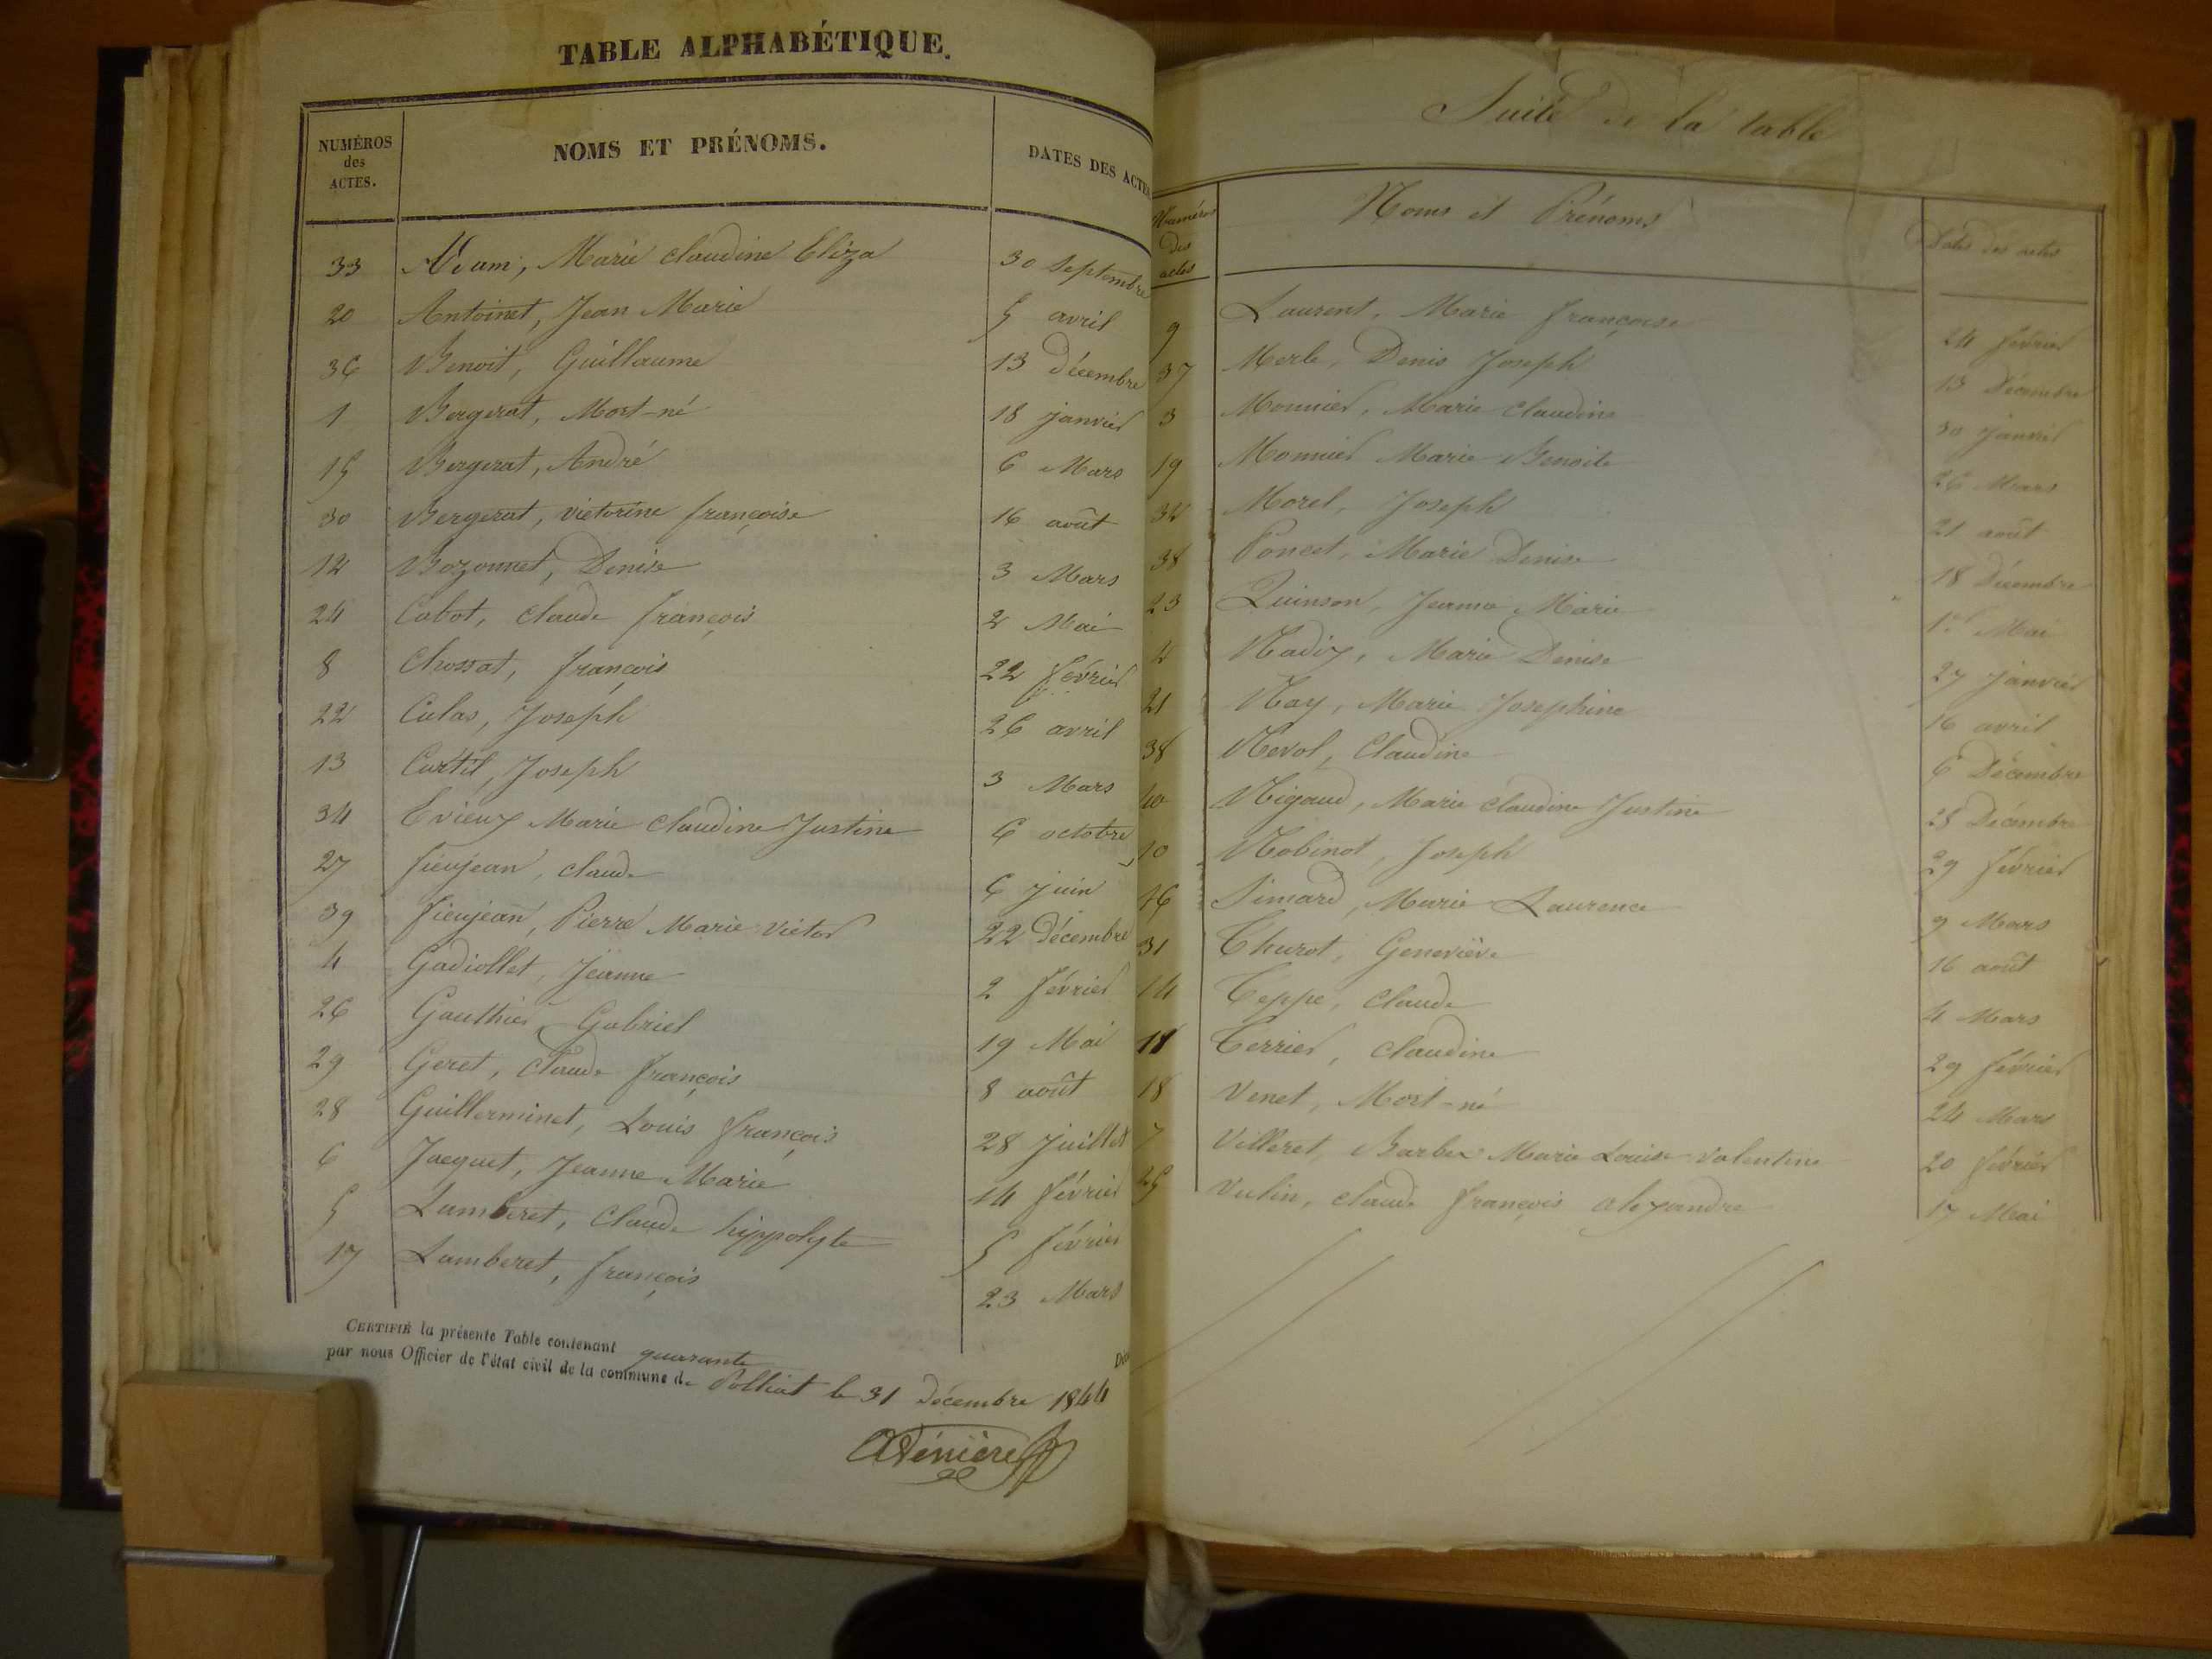 TABLE ALPHABÉTIQUE.
NUMÉROS des ACTES. NOMS ET PRÉNOMS. DATES DES ACTES
33 Adam, Marie Claudine Eliza 30 septembre
20 Antoinet, Jean Marie 5 avril
36 Benoit, Guillaume 13 décembre
1 Bergerat, Mort-né 18 janvier
15 Bergerat, André 6 Mars
30 Bergerat, victorine françoise 16 août
12 Bozonnet, Denise 3 Mars
24 Cabot, claude françois 2 Mai
8 Chossat, françois 22 février
22 Culas, Joseph 26 avril
13 Curtil, Joseph 3 Mars
34 Evieux Marie Claudine Justine 6 octobre
27 fieujean, claude 6 juin
39 fieujean, Pierre Marie Victor 22 décembre
4 Gadiollet, Jeanne 2 février
26 Gauthier, Gabriel 19 Mai
29 Geret, Claude françois 8 août
28 Guillerminet, Louis françois 28 juillet
6 Jacquet, Jeanne Marie 14 février
5 Lamberet, Claude hippolyte 5 février
17 Lamberet, françois 23 Mars
CERTIFIÉ la présente Table contenant quarante
par nous Officier de l'état civil de la commune de Polliat le 31 décembre 1844
Suite de la table
Numéros des actes Noms et Prénoms Dates des actes
9 Laurent, Marie françoise 24 février
37 Merle, Denis Joseph 13 Décembre
3 Monnier, Marie Claudine 30 janvier
19 Monnier Marie Benoite 26 Mars
32 Morel, Joseph 21 août
38 Poncet, Marie Denise 18 Décembre
23 Quinson, Jeanne Marie 1er Mai
2 Radix, Marie Denise 27 janvier
21 Ray, Marie Josephine 16 avril
Revol, Claudine 6 Décembre
40 Rigaud, Marie Claudine Justine 28 Décembre
10 Robinot, Joseph 29 février
16 Simard, Marie Laurence 9 Mars
31 Thurot, Geneviève 16 août
14 Teppe, Claude 4 Mars
11 Terrier, Claudine 29 février
18 Venet, Mort-né 24 Mars
7 Villeret, Barbe Marie Louise Valentine 20 février
25 Vulin, claude françois alexandre 17 Mai